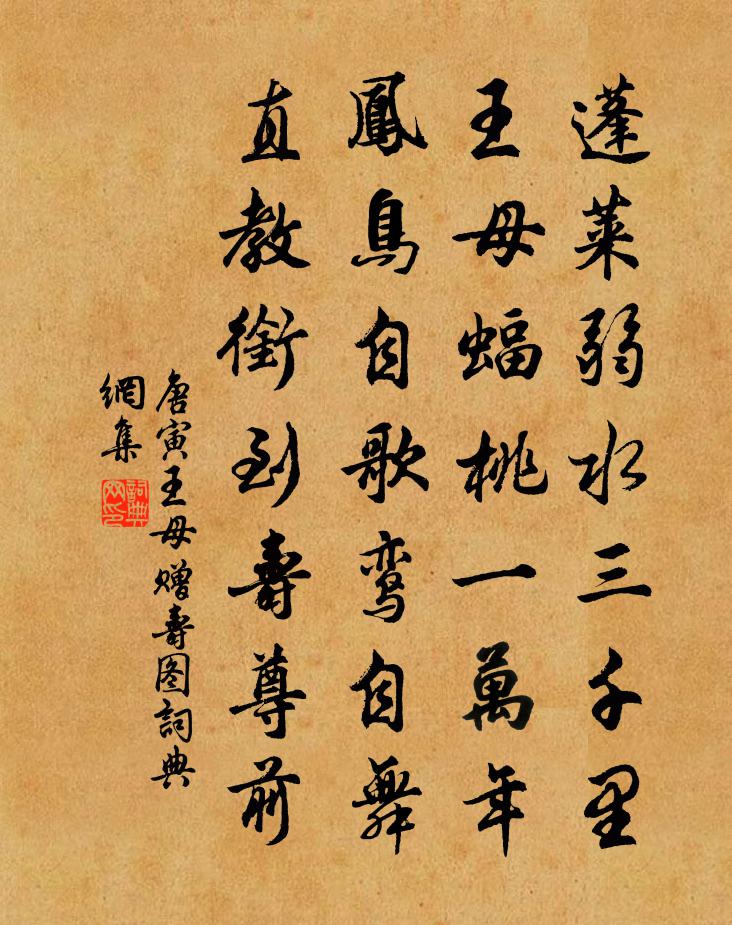 蓬萊弱水三千里
王母蝠桃一萬年
鳳鳥自歌鸾自舞
直教銜到壽尊前
唐寅王母赠壽图詞典
網集
詞典
网印